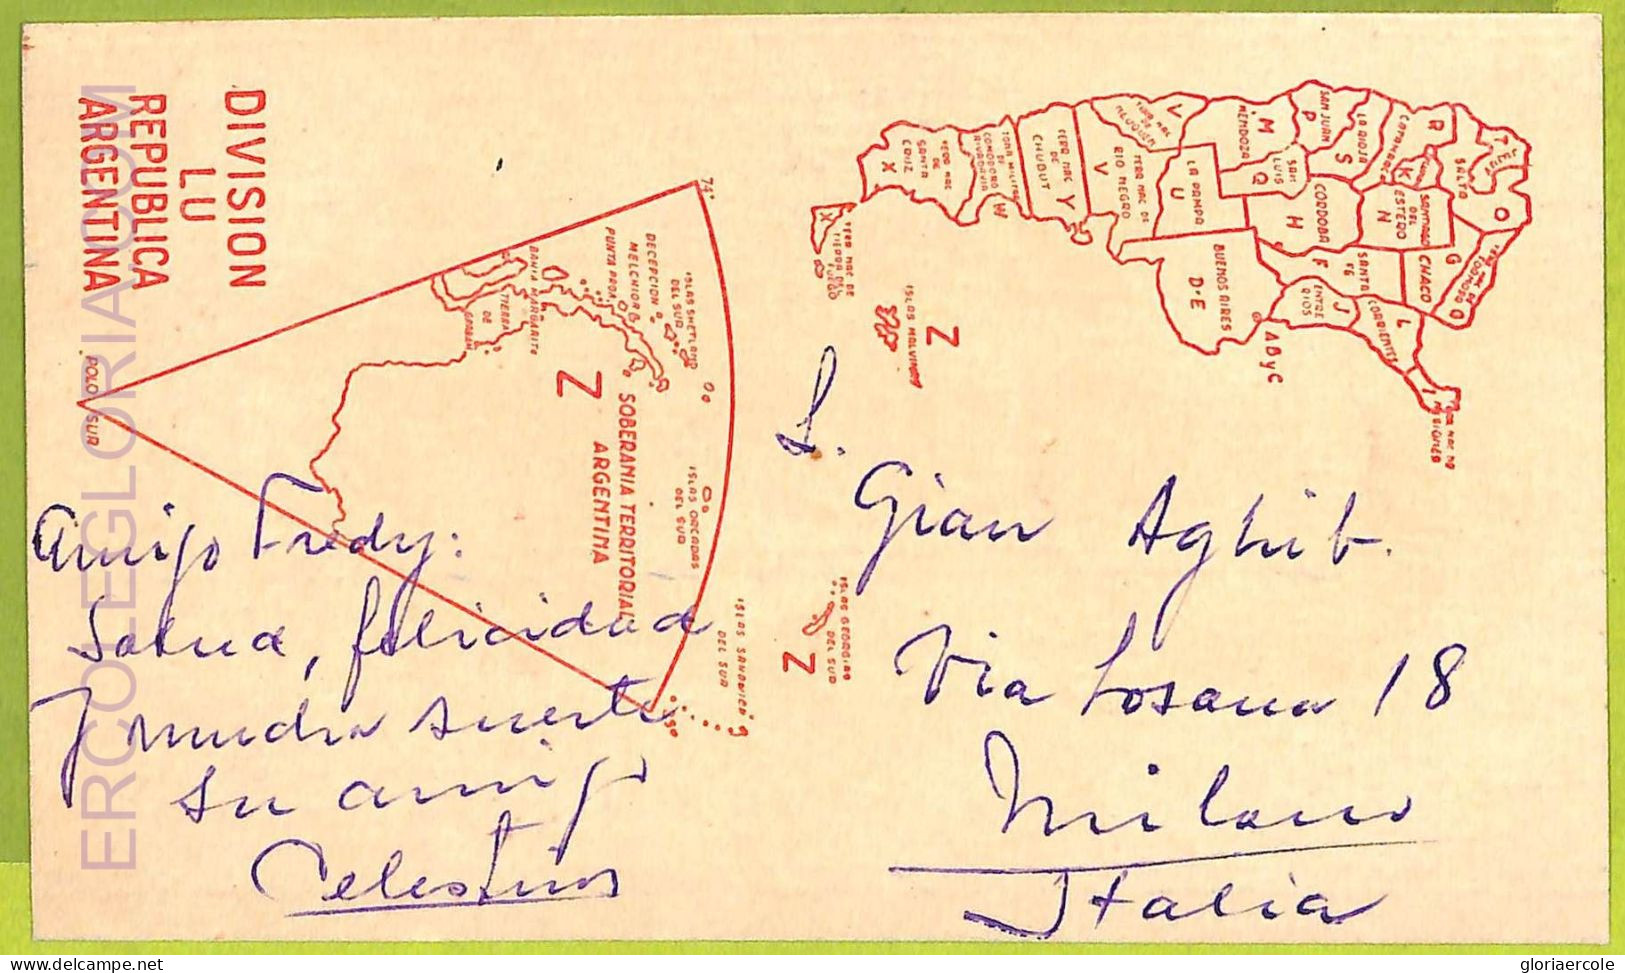 DIVISION
LU
REPUBLICA
ARGENTINA
ERCOLEGLORIA.COM
74°
POLO SUR
SOBERANIA TERRITORIAL
ARGENTINA
Z
ISLAS SHETLAND
DEL SUR
DECEPCION
MELCHIOR
BAHIA MARGARITA
TIERRA
DE
ISLAS ORCADAS
DEL SUR
ISLAS SANDWICH
DEL SUR
Z
ISLAS GEORGIAS
DEL SUR
Z
ISLAS MALVINAS
X
TERR NAC DE
TIERRA DEL
FUEGO
X
TERR NAC
DE
SANTA
CRUZ
W
ZONA MILITAR
DE
COMODORO
RIVADAVIA
Y
TERR NAC
DE
CHUBUT
V
TERR NAC DE
RIO NEGRO
U
LA PAMPA
M
MENDOZA
Q
SAN
LUIS
P
SAN JUAN
S
LA RIOJA
R
CATAMARCA
K
T
O
SALTA
N
SANTIAGO
DEL
ESTERO
H
CORDOBA
F
SANTA
FE
G
CHACO
J
ENTRE
RIOS
L
CORRIENTES
I
D-E
BUENOS AIRES
A B y C
Amigo Fredy:
Salud, felicidad
y mucha suerte
su amigo
Celestino
S.
Gian Aghib.
Via Losana 18
Milano
Italia
gloriaercole
delcampe.net